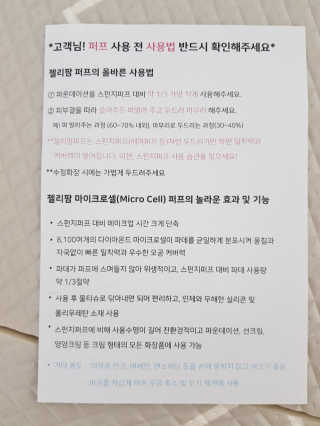 *고객님! 퍼프 사용 전 사용법 반드시 확인해주세요*
젤리팜 퍼프의 올바른 사용법
① 파운데이션을 스펀지퍼프 대비 약 1/3 가량 적게 사용해주세요.
② 피부결을 따라 슬라이드 밀어주고 두드려 마무리 해주세요.
예) 펴 발라주는 과정 (60~70% 내외), 마무리로 두드리는 과정(30~40%)
커버력이 떨어집니다. 이전, 스펀지퍼프 사용 습관을 잊으세요!
**수정화장 시에는 가볍게 두드려주세요
젤리팜 마이크로셀(Micro Cell) 퍼프의 놀라운 효과 및 기능
• 스펀지퍼프 대비 메이크업 시간 크게 단축
• 8,100여개의 다이아몬드 마이크로셀이 파데를 균일하게 분포시켜 뭉침과
자국없이 빠른 밀착력과 우수한 모공 커버력
• 파데가 퍼프에 스며들지 않아 위생적이고, 스펀지퍼프 대비 파데 사용량
약 1/3절약
• 사용 후 물티슈로 닦아내면 되며 편리하고, 인체와 무해한 실리콘 및
폴리우레탄 소재 사용
• 스펀지퍼프에 비해 사용수명이 길어 친환경적이고 파운데이션, 선크림,
영양크림 등 크림 형태의 모든 화장품에 사용 가능